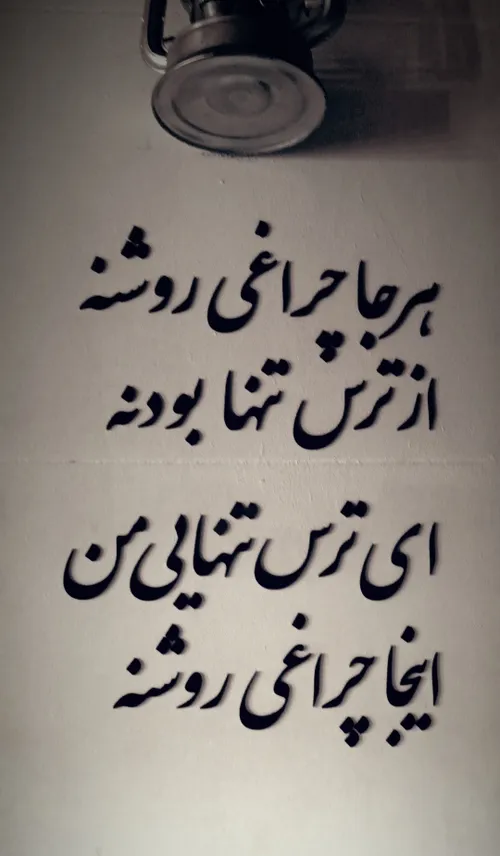 هر جا چراغی روشنه
از ترس تنها بودنه
ای ترس تنهایی من
اینجا چراغی روشنه